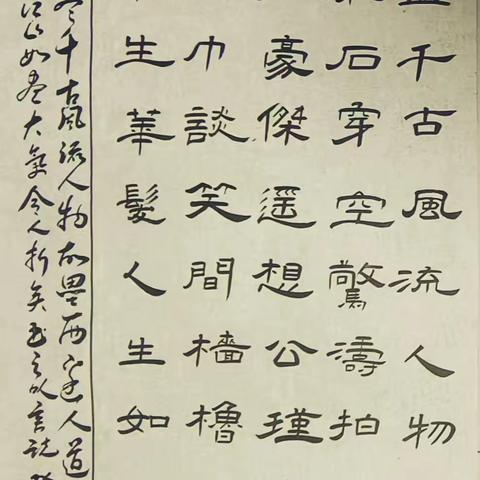 盡千古風流人物
石穿空驚濤拍
豪傑遥想公瑾
巾談笑間檣櫓
生華髮人生如
千古風流人物故壘西邊人道
江山如大氣令人折